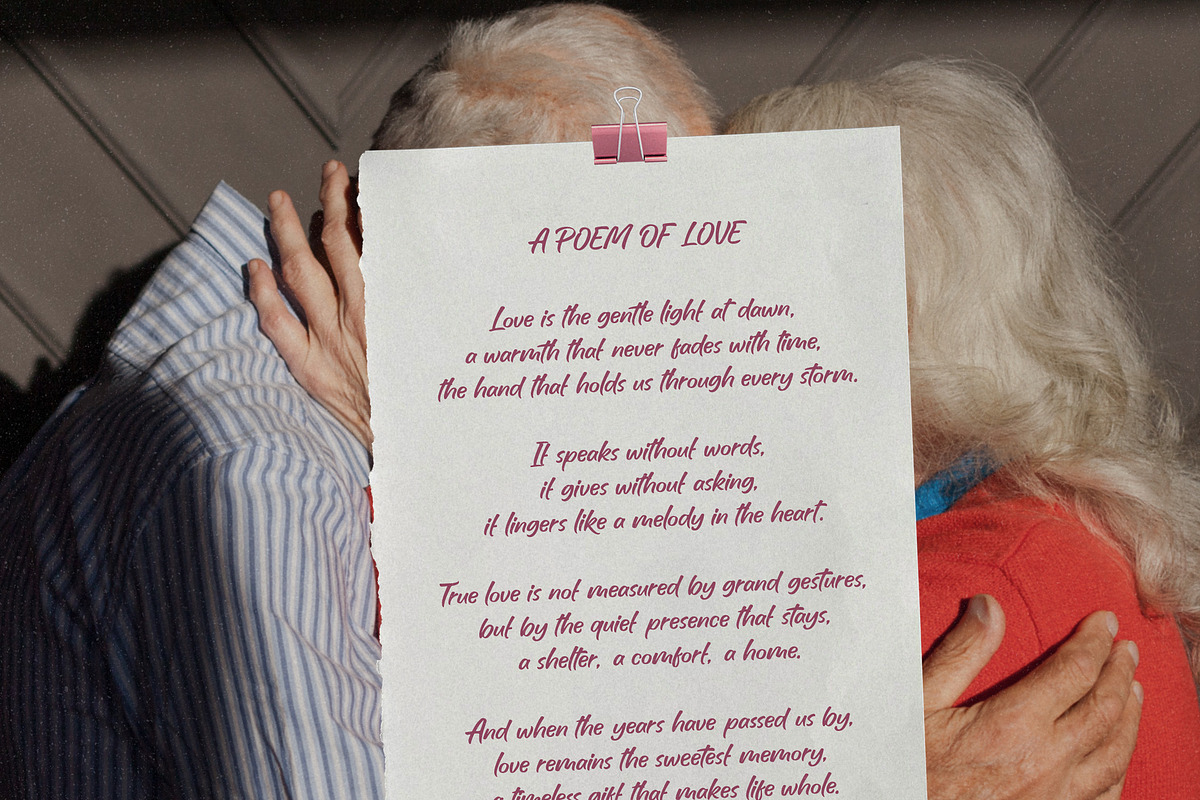 A POEM OF LOVE
Love is the gentle light at dawn,
a warmth that never fades with time,
the hand that holds us through every storm.
It speaks without words,
it gives without asking,
it lingers like a melody in the heart.
True love is not measured by grand gestures,
but by the quiet presence that stays,
a shelter, a comfort, a home.
And when the years have passed us by,
love remains the sweetest memory,
a timeless gift that makes life whole.